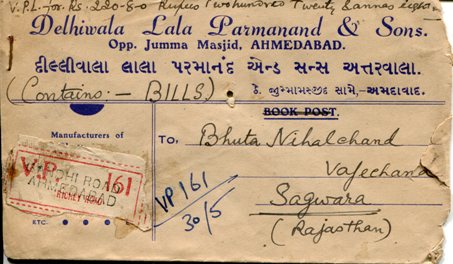 V.P.L. for Rs. 220-8-0 Rupees Two hundred Twenty &annas eight
Delhiwala Lala Parmanand & Sons.
Opp. Jumma Masjid, AHMEDABAD.
દીલ્લીવાલા લાલા પરમાનંદ એન્ડ સન્સ અત્તરવાલા.
(Contains:- BILLS) ઠે. જુમ્મામસ્જીદ સામે,-અમદાવાદ.
BOOK POST.
Manufacturers of
TO, Bhuta Nihalchand
Vajechand
Sagwara
(Rajasthan)
V.P. 161
ROAD
AHMEDABAD
VP 161
30/5
ETC.